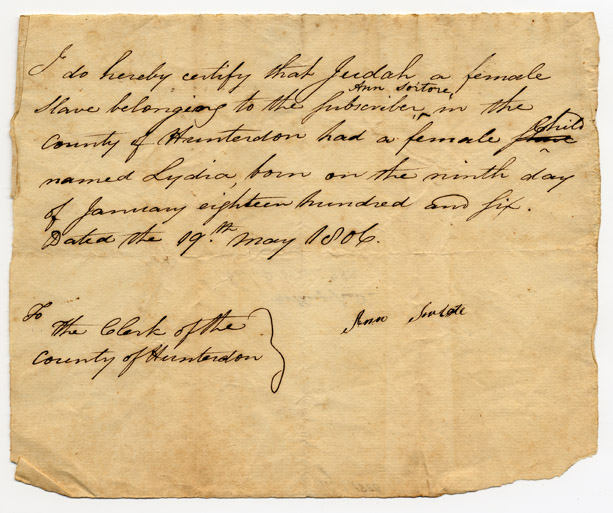 I do hereby certify that Judah a female
Ann Sortore
slave belonging to the subscriber, in the
County of Hunterdon had a female Child
named Lydia, born on the ninth day
of January eighteen hundred and six.
Dated the 19th May 1806.
To
the Clerk of the
County of Hunterdon
Ann